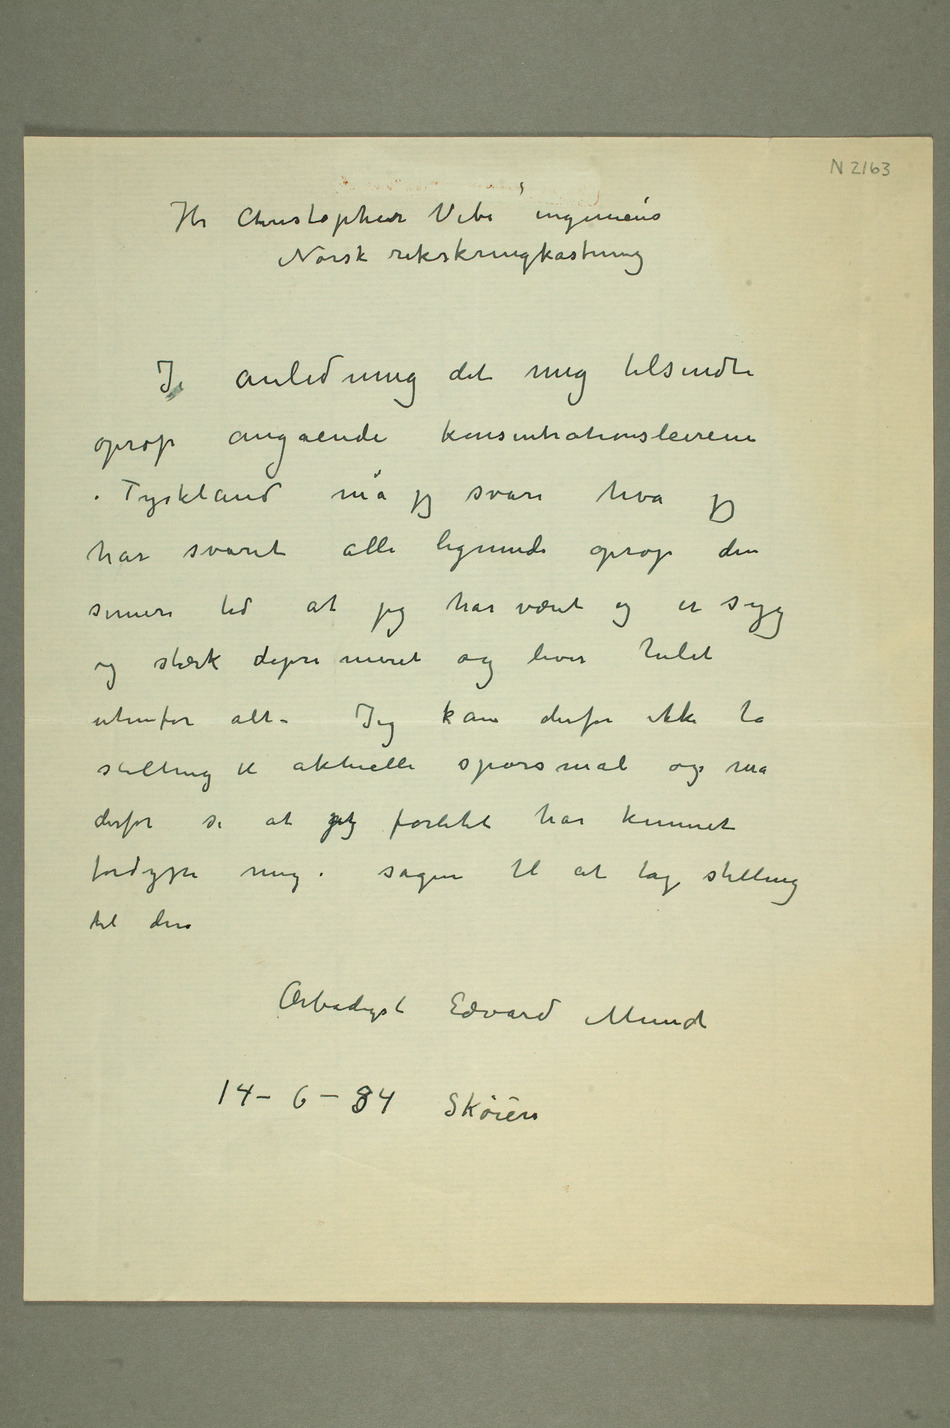 N 2163
Hr Christopher Vibe ingeniør
Norsk rikskringkastning
I anledning det mig tilsendte
oprop angaaende konsentrationsleirene
i Tyskland må jeg svare hva jeg
har svaret alle lignende oprop den
senere tid at jeg har været og er syg
og stærk deprimeret og lever helst
utenfor alt – Jeg kan derfor ikke ta
stilling til aktuelle spørsmål og må
derfor si at jeg forlitet har kunnet
fordype mig i sagen til at tag stilling
til den
Ærbødigst Edvard Munch
14 – 6 – 34 Skøien